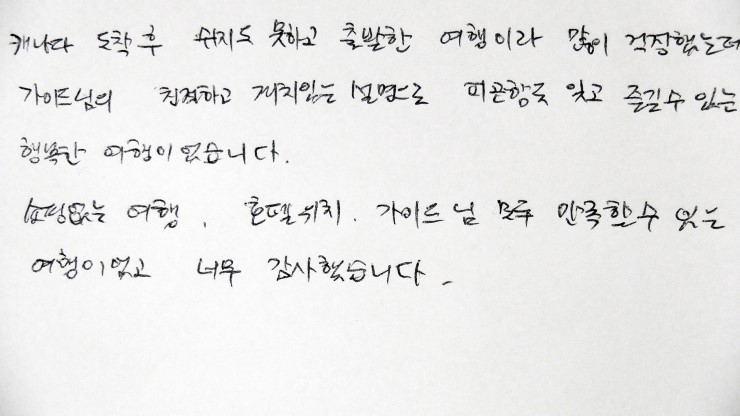 캐나다 도착 후 쉬지도 못하고 출발한 여행이라 많이 걱정했는데
가이드님의 친절하고 재치있는 설명으로 피곤함도 잊고 즐길수 있는
행복한 여행이었습니다.
쇼핑없는 여행, 호텔위치, 가이드님 모두 만족할수 있는
여행이었고 너무 감사했습니다.